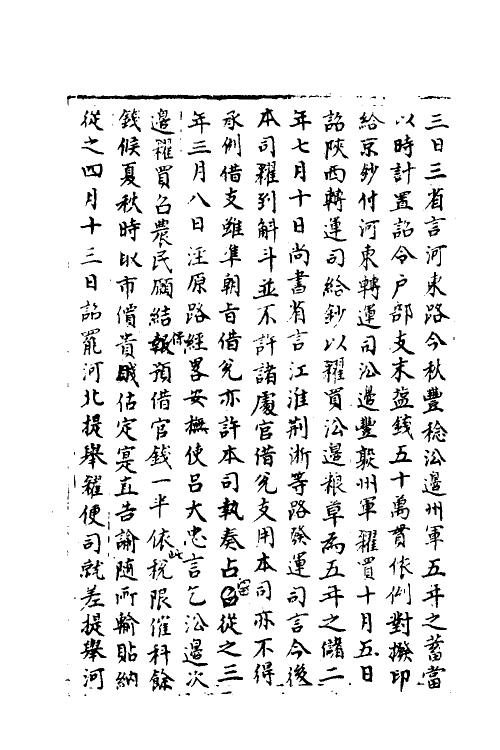 三日三省言河東路今秋豐稔沿邊州軍五年之蓄當
以時計置詔令户部支末鹽錢五十萬貫依例對撥印
給京鈔付河東轉運司沿邊豐熟州軍糴買十月五日
詔陝西轉運司給鈔以糴買沿邊糧草為五年之儲二
年七月十日尚書省言江淮荆浙等路發運司言今後
本司糴到斛斗並不許諸處官借兑支用本司亦不得
承例借支雖準朝旨借兑亦許本司執奏占留從之三
年三月八日涇原路經畧安撫使吕大忠言乞沿邊次
邊糴買召農民願結保預借官錢一半依此稅限催科餘
錢候夏秋時以市價貴賤估定寔直告諭隨所輸貼納
從之四月十三日詔罷河北提舉糴便司就差提舉河